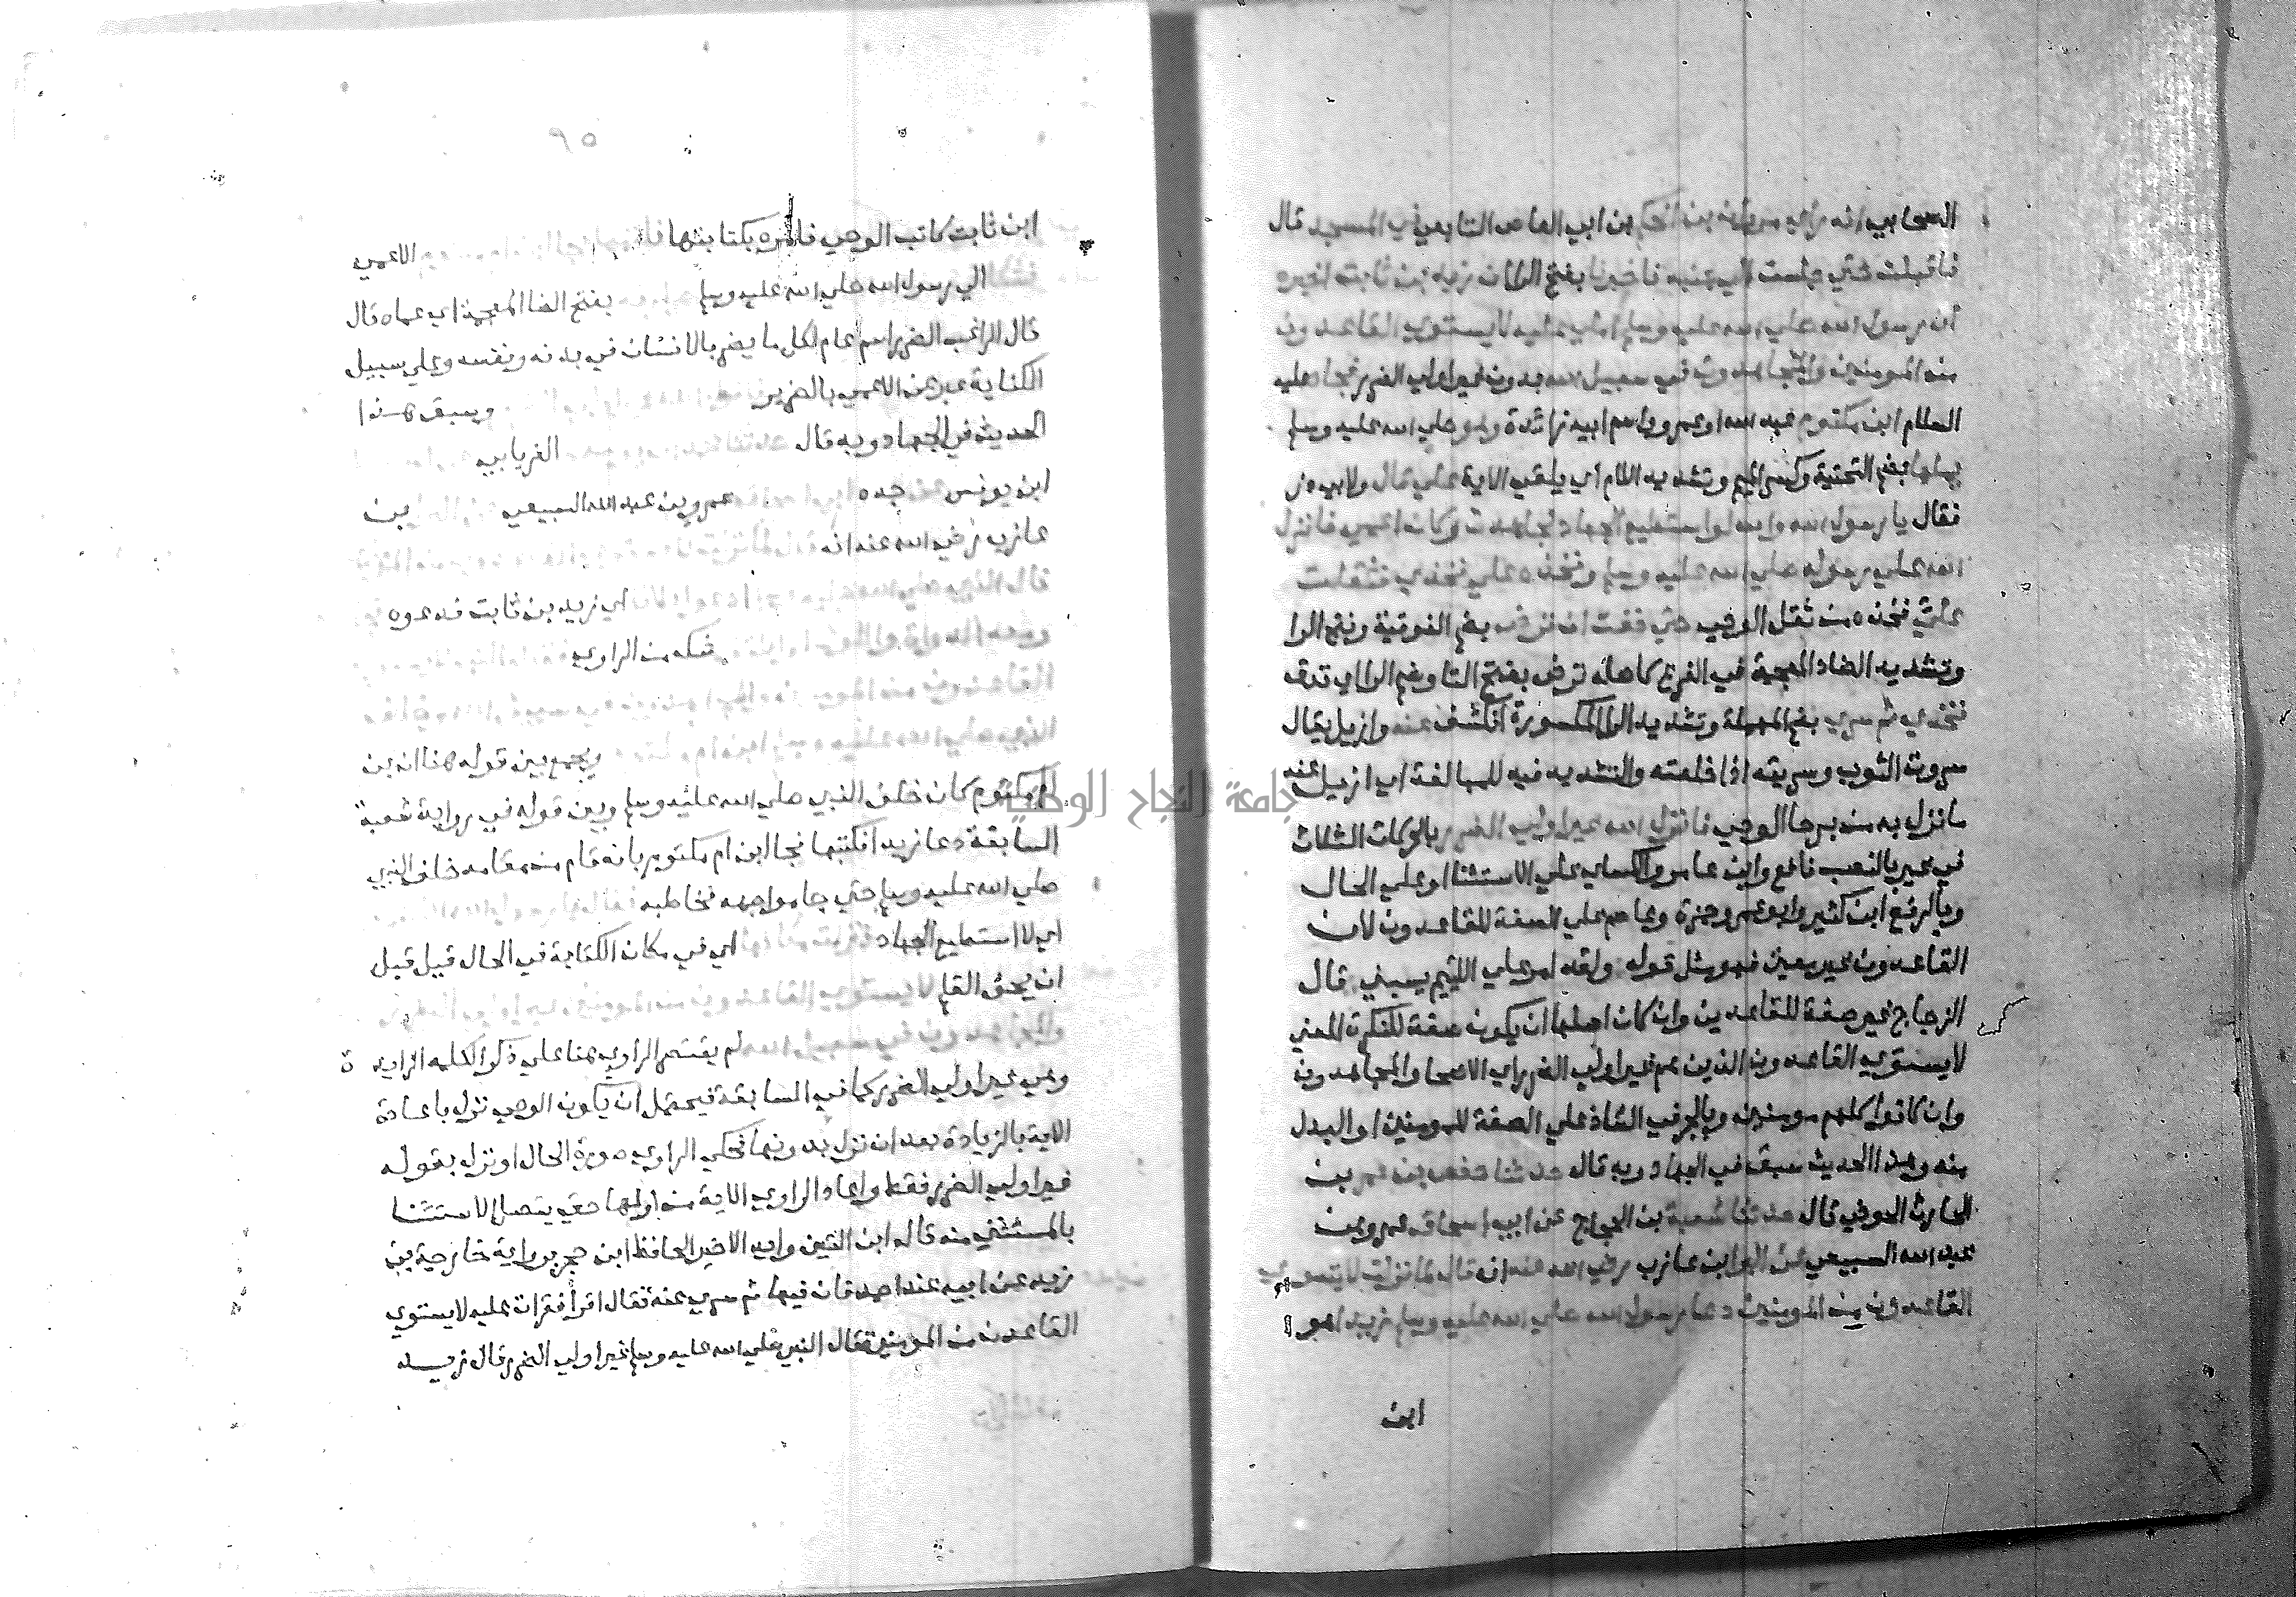 الصحابي انه راي مروان بن الحكم بن ابي العاص التابعي في المسجد قال
فاقبلت حتي جلست الي جنبه فاخبرنا بفتح الراان زيد بن ثابت اخبره
ان رسول الله صلي الله عليه وسلم املي عليه لا يستوي القاعدون
من المومنين والمجاهدون في سبيل الله بدون غير اولي الضرر فجا عليه
السلام ابن مكتوم عبد الله او عمرو واسم ابيه زائدة وهو صلي الله عليه وسلم
يملها بضم التحتية وكسر الميم وتشديد اللام اي يلقي الاية علي قال ولابي ذر
فقال يا رسول الله والله لو استطيع الجهاد لجاهدت وكان اعمي فانزل
الله علي رسوله صلي الله عليه وسلم وفخذه علي فخذي فثقلت
علي فخذه من ثقل الوحي حتي خفت ان ترض بضم الفوقية وفتح الرا
وتشديد الضاد المعجمة في الفرع كاصله ترض بفتح التا وضم الراي تدق
فخذي ثم سري بضم المهملة وتشديد الرا المكسورة انكشف عنه وازيل يقال
سروت الثوب وسريته اذا خلعته والتشديد فيه للمبالغة اي ازيل عنه
ما نزل به من برحا الوحي فانزل الله غير اولي الضرر بالحركات الثلاث
في غير بالنصب نافع وابن عامر والكساي علي الاستثنا او علي الحال
وبالرفع ابن كثير وابو عمرو وحمزة وعاصم علي الصفة للقاعدون لان
القاعدون غير معين فهو مثل قوله ولقد امر علي اللئيم يسبني قال
الزجاج غير صفة للقاعدين وان كان اصلها ان يكون صفة للنكرة المعني
لا يستوي القاعدون الذين هم غير اولي الضرر اي الاصحا والمجاهدون
وان كانوا كلهم مومنين وبالجر في الشاذ علي الصفة للمومنين او البدل
منه وهذا الحديث سبق في الجهاد وبه قال حدثنا حفص بن عمر بن
الحارث الحوضي قال حدثنا شعبة بن الحجاج عن ابي اسحاق عمرو بن
عبد الله السبيعي عن البرا بن عازب رضي الله عنه انه قال لما نزلت لا يستوي
القاعدون من المومنين دعا رسول الله صلي الله عليه وسلم زيدا هو
ابن
ابن ثابت كاتب الوحي فامره بكتابتها الاعمي
الي رسول الله صلي الله عليه وسلم بفتح الضا المعجمة اي عماه قال
قال الراغب الضرر اسم عام لكل ما يضر بالانسان في بدنه ونفسه وعلي سبيل
الكناية عبر عن الاعمي بالضرير وسبق هذا
الحديث في الجهاد وبه قال الفريابي
ابن يونس جده عمرو بن عبد الله السبيعي بن
عازب رضي الله عنه انه
اي زيد بن ثابت فدعوه
شك من الراوي
ويجمع بين قوله هنا ان بن
ام مكتوم كان خلف النبي صلي الله عليه وسلم وبين قوله في رواية شعبة
السابقة دعا زيدا فكتبها فجا ابن ام مكتوم بانه قام من مقامه خلف النبي
صلي الله عليه وسلم حتي جا مواجهه فخاطبه
اي لا استطيع الجهاد اي في مكان الكتابة في الحال قبل قبل
ان يجف القلم
لم يقتصر الراوي هنا علي ذكر الكلمه الزايدة
وهي غير اولي الضرر كما في السابقة فيحتمل ان يكون الوحي نزل باعادة
الاية بالزيادة بعد ان نزل بدونها فحكي الراوي صورة الحال او نزل بقوله
غير اولي الضرر فقط واعاد الراوي الاية من اولها حتي يتصل الاستثنا
بالمستثني منه قاله ابن التين وايد الاخير الحافظ ابن حجر برواية خارجة بن
زيد عن ابيه عند احمد فان فيها ثم سري عنه فقال اقرأ فقرات عليه لا يستوي
القاعدون من المومنين فقال النبي صلي الله عليه وسلم غير اولي الضرر قال زيد
جامعة النجاح الوطنية